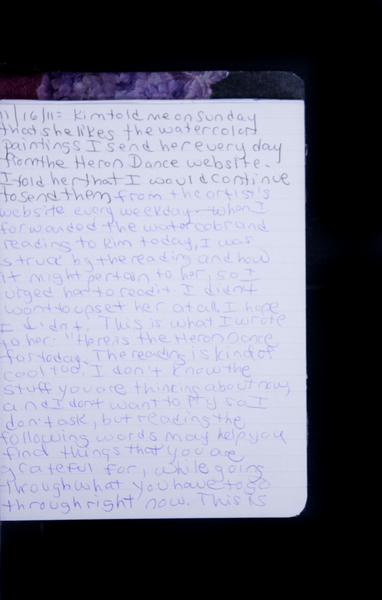 11/16/11: Kim told me on Sunday
that she likes the watercolor
paintings I send her every day
from the Heron Dance website.
I told her that I would continue
to send them from the artist's
website every weekday. When I
forwarded the watercolor and
reading to Kim today, I was
struck by the reading and how
it might pertain to her, so I
urged her to read it. I didn't
want to upset her at all. I hope
I didn't. This is what I wrote
to her: "Here is the Heron Dance
for today. The reading is kind of
cool too. I don't know the
stuff you are thinking about now,
and I don't want to pry so I
don't ask, but reading the
following words may help you
find things that you are
grateful for, while going
through what you have to go
through right now. This is